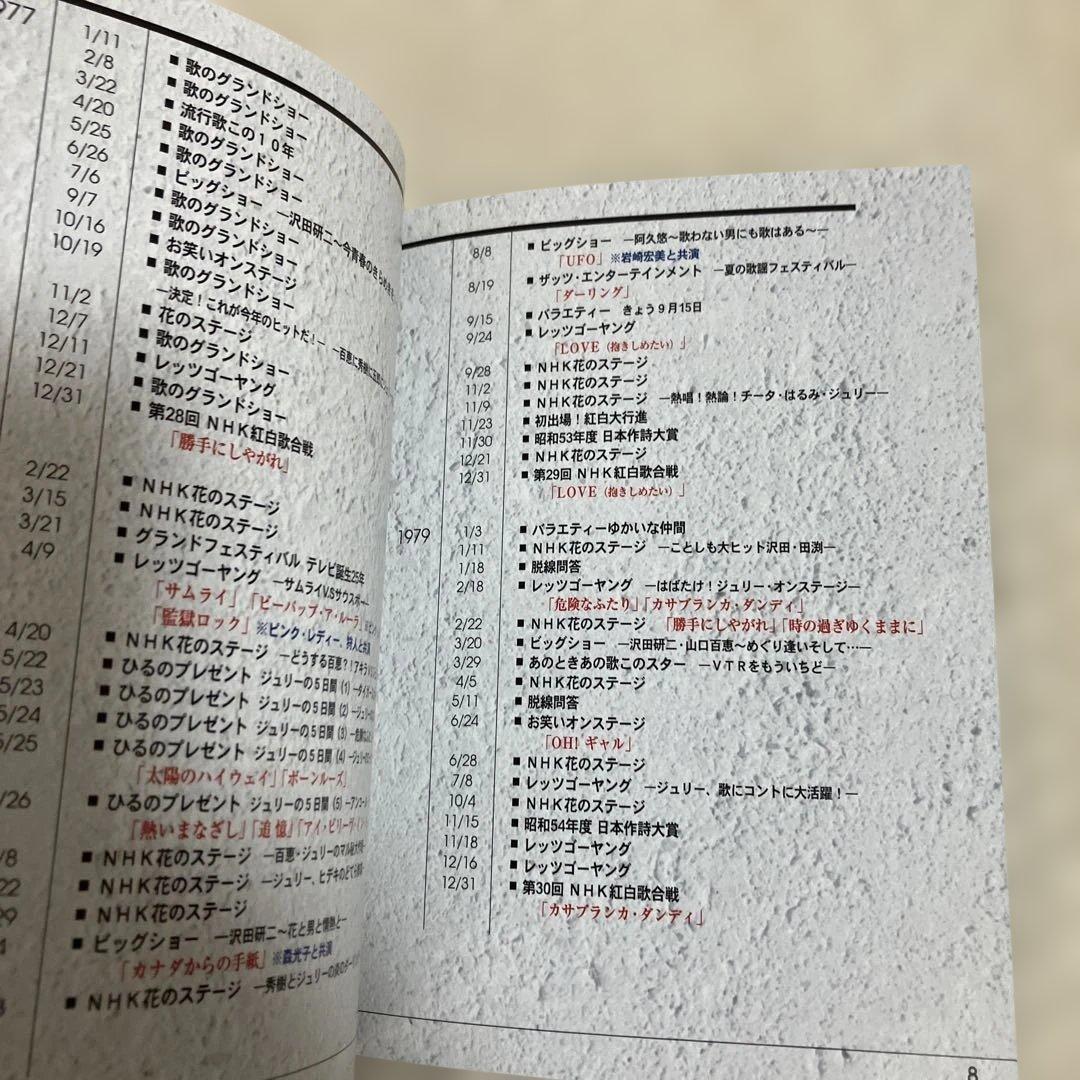 1977
1/11 ■ 歌のグランドショー
2/8 ■ 歌のグランドショー
3/22 ■ 流行歌この10年
4/20 ■ 歌のグランドショー
5/25 ■ 歌のグランドショー
6/26 ■ ビッグショー ―沢田研二〜今青春のきらめきを
7/6 ■ 歌のグランドショー
9/7 ■ 歌のグランドショー
10/16 ■ お笑いオンステージ
10/19 ■ 歌のグランドショー
―決定!これが今年のヒットだ!― ―百恵に秀樹に五郎に
11/2 ■ 花のステージ
12/7 ■ 歌のグランドショー
12/11 ■ レッツゴーヤング
12/21 ■ 歌のグランドショー
12/31 ■ 第28回 NHK紅白歌合戦
「勝手にしやがれ」
2/22 ■ NHK花のステージ
3/15 ■ NHK花のステージ
3/21 ■ グランドフェスティバル テレビ誕生25年
4/9 ■ レッツゴーヤング ―サムライV.Sサウスポー―
「サムライ」「ビーバップ・ア・ルーラ」
「監獄ロック」※ピンク・レディー、狩人と共演
4/20 ■ NHK花のステージ ―どうする百恵?!アキラ
5/22 ■ ひるのプレゼント ジュリーの5日間(1)
5/23 ■ ひるのプレゼント ジュリーの5日間(2)
5/24 ■ ひるのプレゼント ジュリーの5日間(3)
5/25 ■ ひるのプレゼント ジュリーの5日間(4)
「太陽のハイウェイ」「ボーンルーズ」
/26 ■ ひるのプレゼント ジュリーの5日間(5)
「熱いまなざし」「追憶」「アイ・ビリーヴ・イン
/8 ■ NHK花のステージ ―百恵・ジュリーのマル秘大作戦
22 ■ NHK花のステージ ―ジュリー、ヒデキの
29 ■ NHK花のステージ
■ ビッグショー ―沢田研二〜花と男と情熱と―
「カナダからの手紙」※森光子と共演
■ NHK花のステージ ―秀樹とジュリーの炎の
8/8 ■ ビッグショー ―阿久悠〜歌わない男にも歌はある〜―
「UFO」※岩崎宏美と共演
8/19 ■ ザッツ・エンターテインメント ―夏の歌謡フェスティバル―
「ダーリング」
9/15 ■ バラエティー きょう9月15日
9/24 ■ レッツゴーヤング
「LOVE(抱きしめたい)」
9/28 ■ NHK花のステージ
11/2 ■ NHK花のステージ
11/9 ■ NHK花のステージ ―熱唱!熱論!チータ・はるみ・ジュリー―
11/23 ■ 初出場!紅白大行進
11/30 ■ 昭和53年度 日本作詩大賞
12/21 ■ NHK花のステージ
12/31 ■ 第29回 NHK紅白歌合戦
「LOVE(抱きしめたい)」
1979 1/3 ■ バラエティーゆかいな仲間
1/11 ■ NHK花のステージ ―ことしも大ヒット沢田・田渕―
1/18 ■ 脱線問答
2/18 ■ レッツゴーヤング ―はばたけ!ジュリー・オンステージ―
「危険なふたり」「カサブランカ・ダンディ」
2/22 ■ NHK花のステージ 「勝手にしやがれ」「時の過ぎゆくままに」
3/20 ■ ビッグショー ―沢田研二・山口百恵〜めぐり逢いそして…―
3/29 ■ あのときあの歌このスター ―VTRをもういちど―
4/5 ■ NHK花のステージ
5/11 ■ 脱線問答
6/24 ■ お笑いオンステージ
「OH! ギャル」
6/28 ■ NHK花のステージ
7/8 ■ レッツゴーヤング ―ジュリー、歌にコントに大活躍!―
10/4 ■ NHK花のステージ
11/15 ■ 昭和54年度 日本作詩大賞
11/18 ■ レッツゴーヤング
12/16 ■ レッツゴーヤング
12/31 ■ 第30回 NHK紅白歌合戦
「カサブランカ・ダンディ」
8